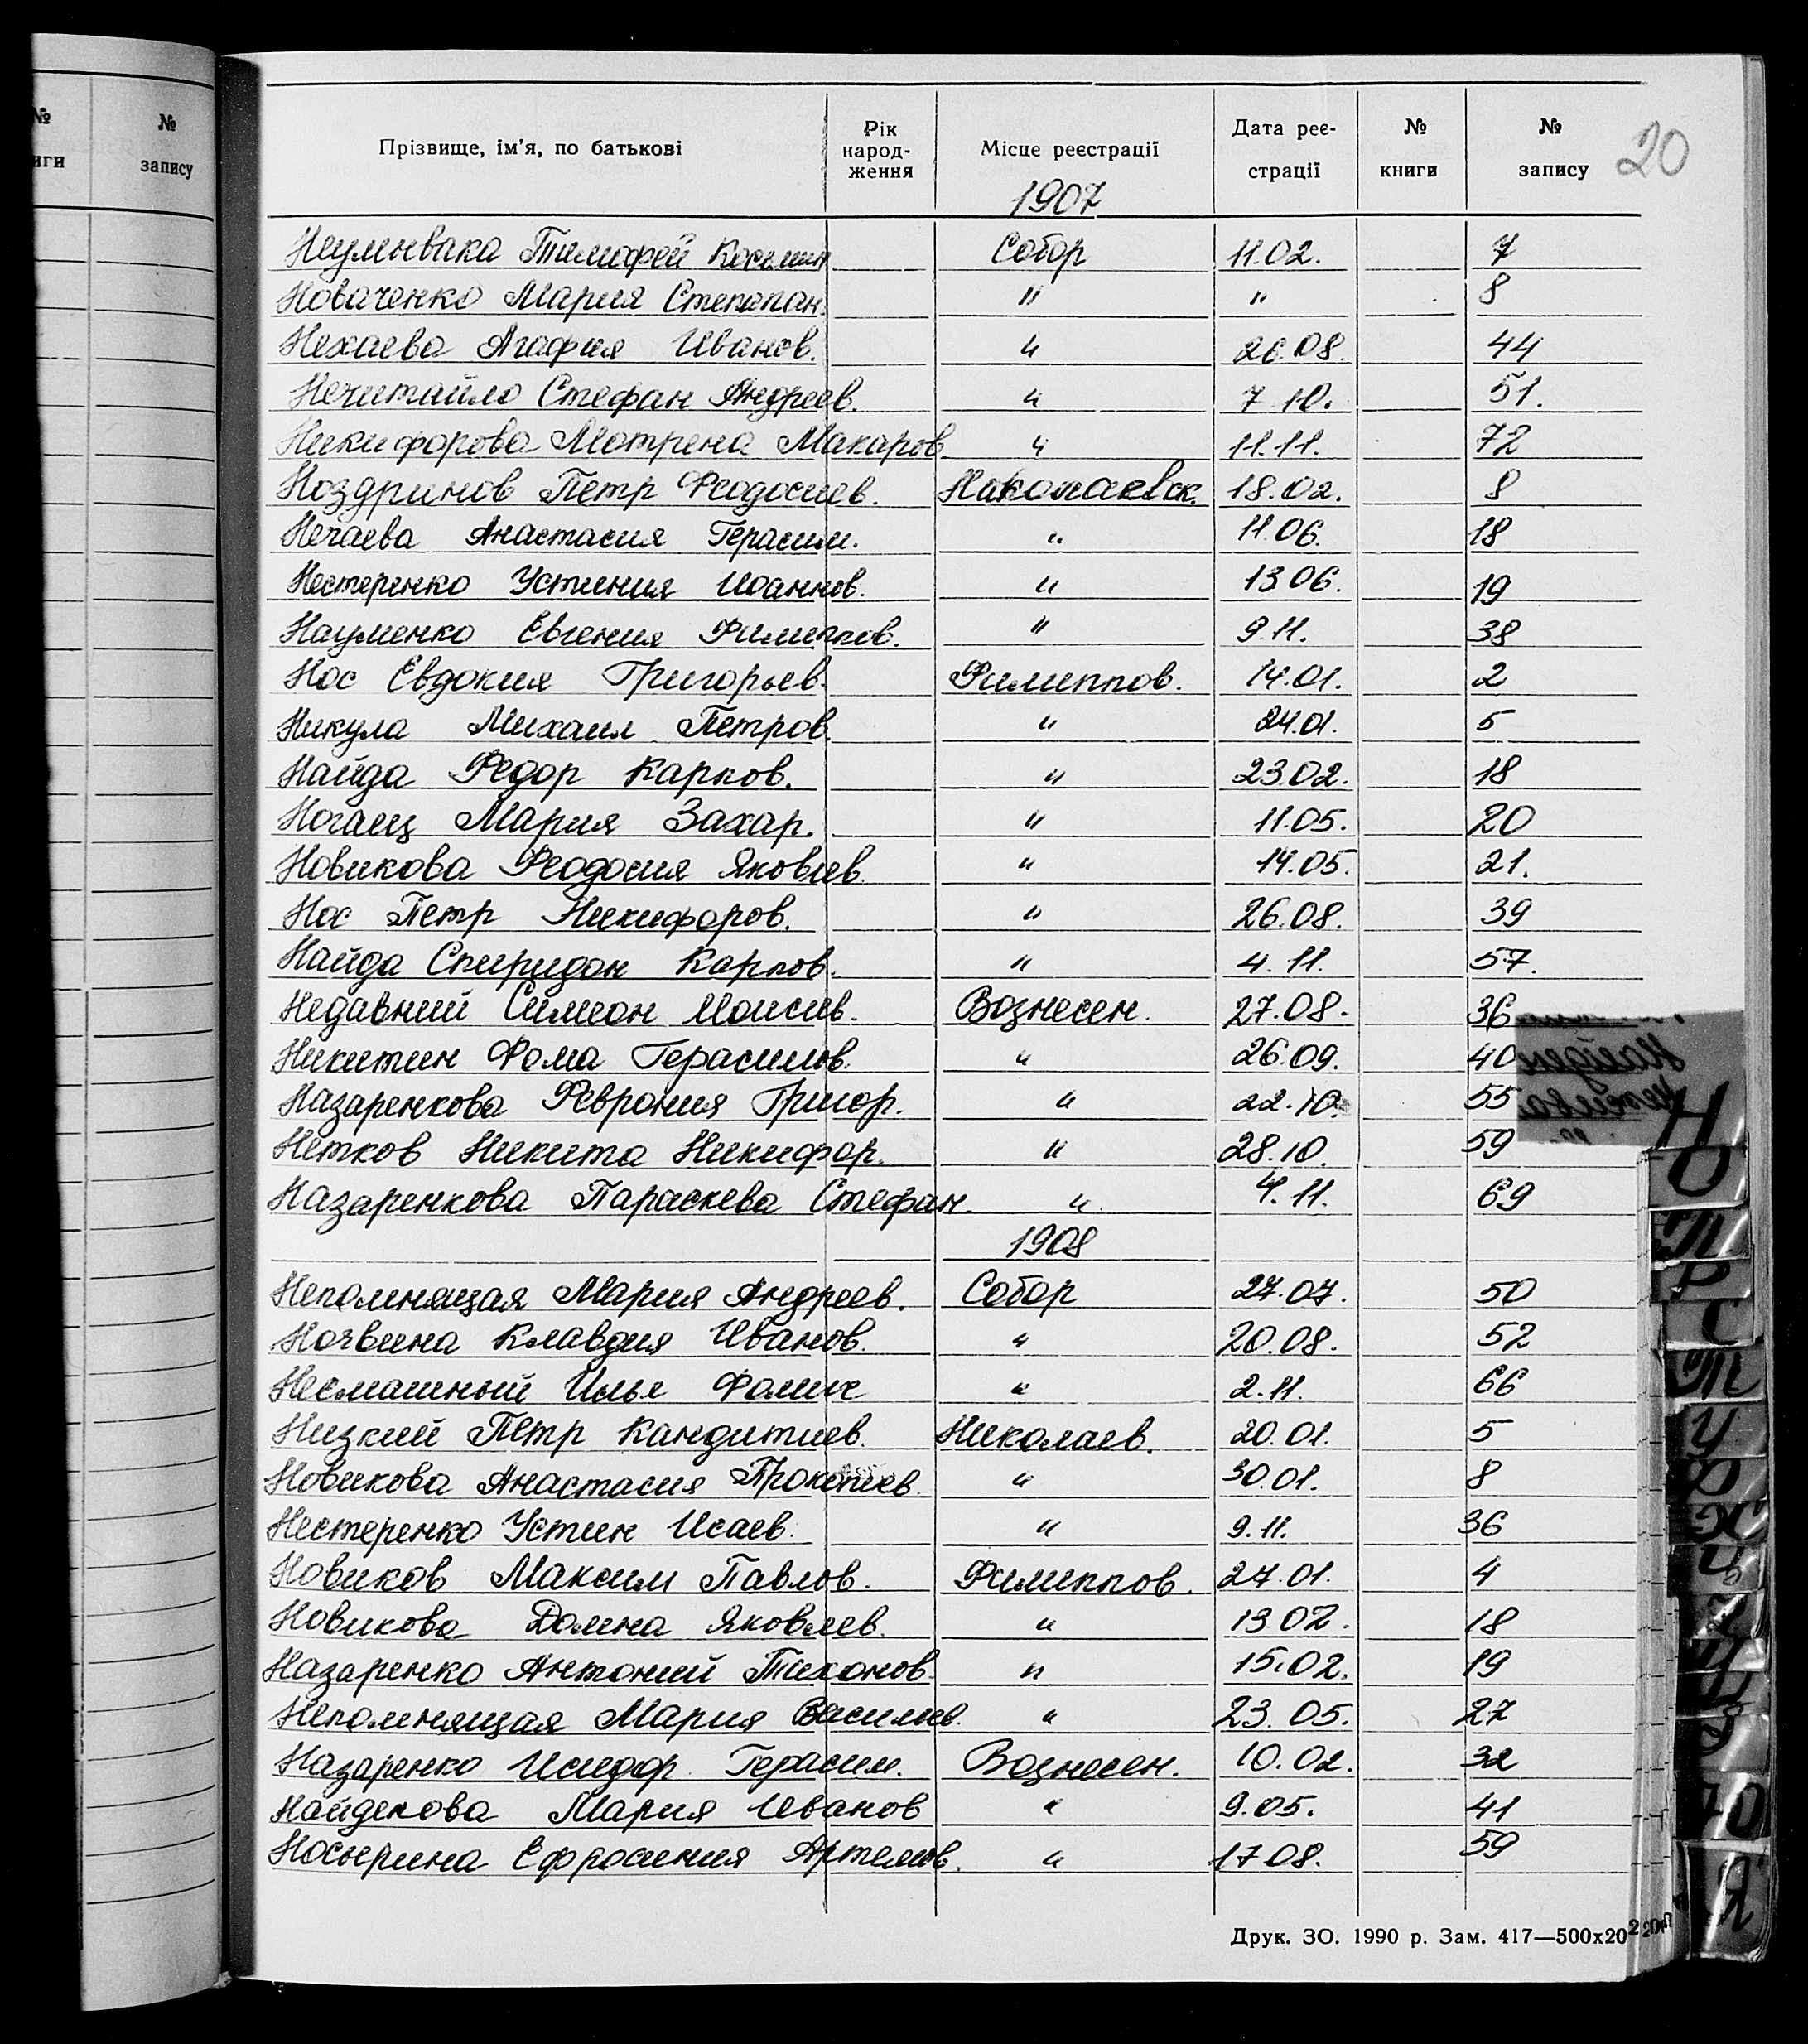 № книги № запису
Прізвище, ім'я, по батькові Рік народ- ження Місце реєстрації Дата реє- страції № книги № запису 20
1907
Неумывака Тимофей Косьмин Собор 11.02. 7
Новаченко Мария Степапан. " " 8
Нехаева Агафия Иванов. " 26.08. 44
Нечитайло Стефан Андреев. " 7.10. 51.
Никифорова Матрена Макаров " 11.11. 72
Ноздринов Петр Феодосиев. Николаевск. 18.02. 8
Нечаева Анастасия Герасим. " 11.06. 18
Нестеренко Устиния Иоаннов. " 13.06. 19
Науменко Евгения Филиппов. " 9.11. 38
Нос Евдокия Григорьев. Филиппов. 14.01. 2
Никула Михаил Петров. " 24.01. 5
Найда Федор Карпов. " 23.02. 18
Ногаец Мария Захар. " 11.05. 20
Новикова Феодосия Яковлев. " 14.05. 21.
Нос Петр Никифоров. " 26.08. 39
Найда Спиридон Карпов. " 4.11. 57.
Недавний Симеон Моисив. Вознесен. 27.08. 36
Никитин Фома Герасимов. " 26.09. 40
Назаренкова Феврония Григор. " 22.10. 55
Нетков Никита Никифор. " 28.10. 59
Назаренкова Параскева Стефан. " 4.11. 69
1908
Непомнящая Мария Андреев. Собор 27.07. 50
Ночвина Клавдия Иванов. " 20.08. 52
Несмашный Илья Фомич " 2.11. 66
Низкий Петр Кандитиев. Николаев. 20.01. 5
Новикова Анастасия Прокопиев. " 30.01. 8
Нестеренко Устин Исаев. " 9.11. 36
Новиков Максим Павлов. Филиппов. 27.01. 4
Новикова Домна Яковлев. " 13.02. 18
Назаренко Антоний Тихонов. " 15.02. 19
Непомнящая Мария Васильев. " 23.05. 27
Назаренко Исидор Герасим. Вознесен. 10.02. 32
Найденова Мария Иванов " 9.05. 41
Носырина Ефросиния Артемов. " 17.08. 59
Друк. ЗО. 1990 р. Зам. 417—500х20
Н
О
П
Р
С
Т
У
Ф
Х
Ц
Ю
Я